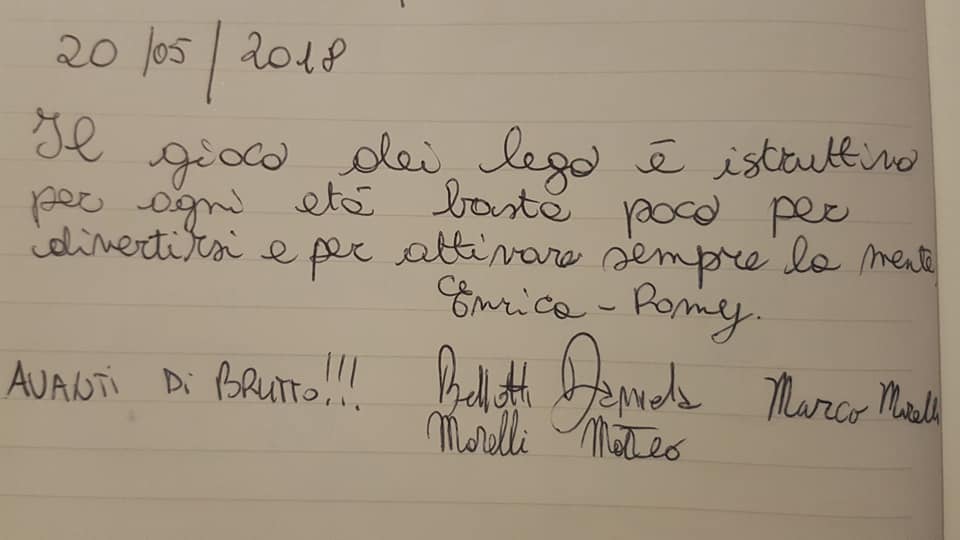 20/05/2018
Il gioco dei lego è istruttivo
per ogni età basta poco per
divertirsi e per attivare sempre la mente
Enrica - Romy.
AVANTI DI BRUTTO!!! Bellotti Daniela Marco Morelli
Morelli Matteo